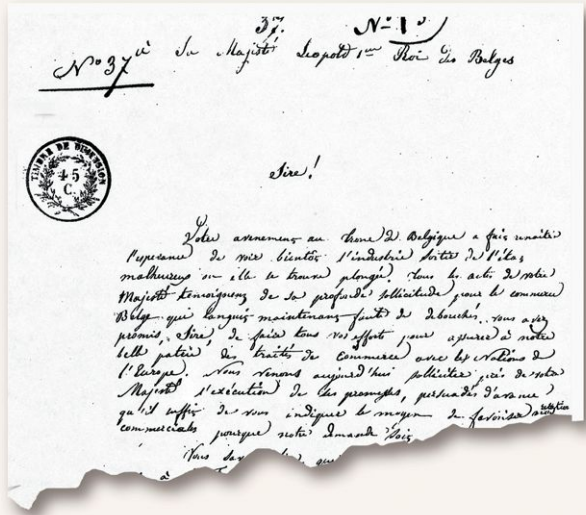 37.
N° 1
N° 37 à Sa Majesté Leopold 1er Roi des Belges
TIMBRE DE DIMENSION
45
C.
Sire!
Votre avenement au trone de Belgique a fait renaitre
l'esperance de voir bientôt l'industrie sortir de l'état
malheureux où elle se trouve plongée. Tous les actes de votre
Majesté temoignent de sa profonde sollicitude pour le commerce
Belge qui languit maintenant faute de debouchés. Vous avez
promis, Sire, de faire tous vos efforts pour assurer à notre
belle patrie des traités de Commerce avec les Nations de
l'Europe. Nous venons aujourd'hui solliciter près de votre
Majesté l'exécution de ses promesses, persuadés d'avance
qu'il suffit de vous indiquer le moyen de favoriser nos relations
commerciales pourque notre demande soit
Vous
à